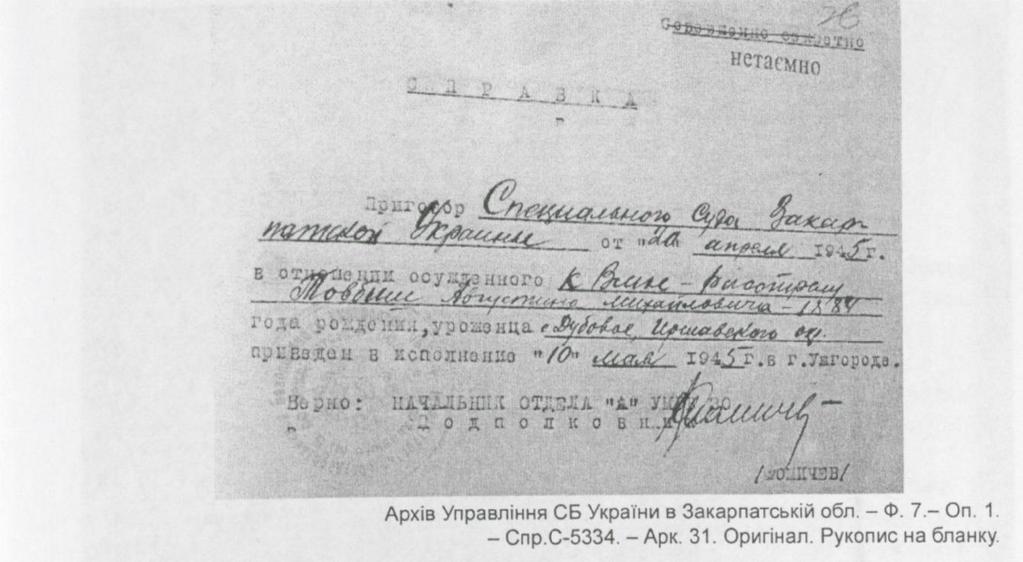 Совершенно секретно
нетаємно
С П Р А В К А
Приговор Специального Суда Закар
патской Украины от "20" апреля 1945 г.
в отношении осужденного к Вмн – расстрелу
Августина Михайловича – 1884
года рождения, уроженца с Дубовое, Иршавского ок.
приведен в исполнение "10" мая 1945 г. в г. Ужгороде.
Верно: НАЧАЛЬНИК ОТДЕЛА "А"
Подполковник
Архів Управління СБ України в Закарпатській обл. – Ф. 7.– Оп. 1.
– Спр.С-5334. – Арк. 31. Оригінал. Рукопис на бланку.